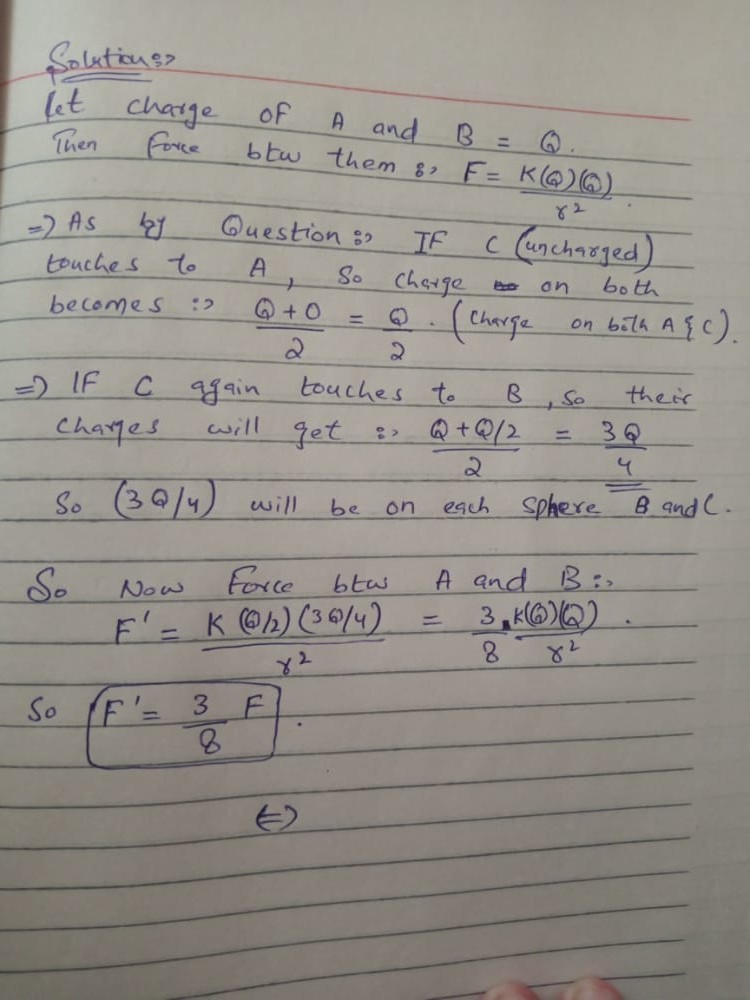 Solution :->
Let charge of A and B = Q.
Then Force btw them :-> F = K(Q)(Q) / r²
=> As by Question :-> IF C (uncharged)
touches to A, So charge on both
becomes :-> Q+0 / 2 = Q / 2 . (Charge on both A & C).
=> IF C again touches to B, so their
charges will get :-> Q+Q/2 / 2 = 3Q / 4
So (3Q/4) will be on each sphere B and C.
So Now Force btw A and B :->
F' = K (Q/2) (3Q/4) / r² = 3/8 . K(Q)(Q) / r² .
So F' = 3/8 F .
<=>